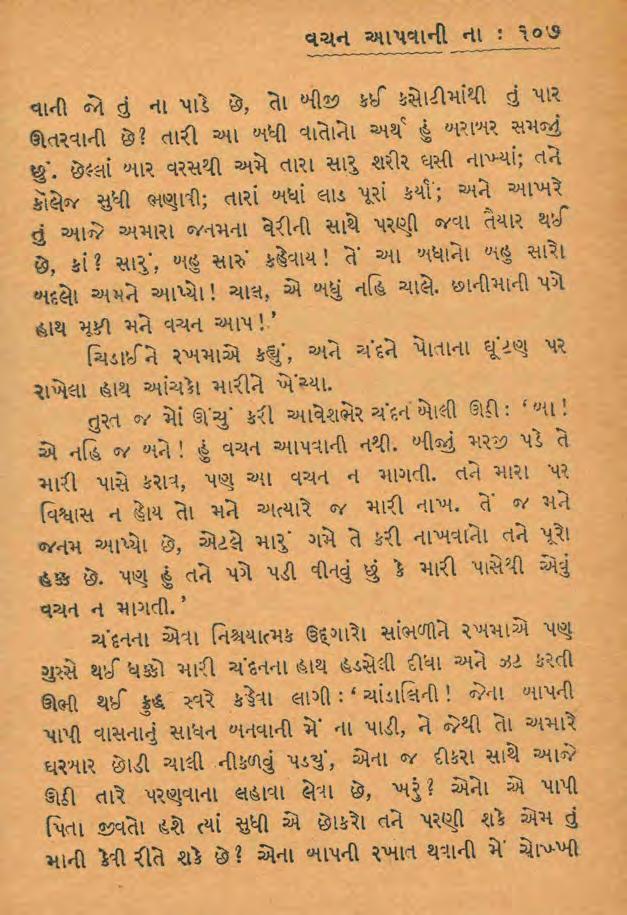 વચન આપવાની ના : ૧૦૭
વાની જો તું ના પાડે છે, તો બીજી કઈ કસોટીમાંથી તું પાર
ઊતરવાની છે? તારી આ બધી વાતોનો અર્થ હું બરાબર સમજું
છું. છેલ્લાં બાર વરસથી અમે તારા સારુ શરીર ઘસી નાખ્યાં; તને
કૉલેજ સુધી ભણાવી; તારાં બધાં લાડ પૂરાં કર્યાં; અને આખરે
તું આજે અમારા જનમના વેરીની સાથે પરણી જવા તૈયાર થઈ
છે, કાં? સારું, બહુ સારું કહેવાય! તેં આ બધાનો બહુ સારો
બદલો અમને આપ્યો! ચાલ, એ બધું નહિ ચાલે. છાનીમાની પગે
હાથ મૂકી મને વચન આપ!’
ચિડાઈને રખમાએ કહ્યું, અને ચંદને પોતાના ઘૂંટણ પર
રાખેલા હાથ આંચકો મારીને ખેંચ્યા.
તુરત જ મોં ઊંચું કરી આવેશભેર ચંદન બોલી ઊઠી : ‘બા!
એ નહિ જ બને! હું વચન આપવાની નથી. બીજું મરજી પડે તે
મારી પાસે કરાવ, પણ આ વચન ન માગતી. તને મારા પર
વિશ્વાસ ન હોય તો મને અત્યારે જ મારી નાખ. તેં જ મને
જનમ આપ્યો છે, એટલે મારું ગમે તે કરી નાખવાનો તને પૂરો
હક્ક છે. પણ હું તને પગે પડી વીનવું છું કે મારી પાસેથી એવું
વચન ન માગતી.’
ચંદનના એવા નિશ્ચયાત્મક ઉદ્ગારો સાંભળીને રખમાએ પણ
ગુસ્સે થઈ ધક્કો મારી ચંદનના હાથ હડસેલી દીધા અને ઝટ કરતી
ઊભી થઈ ક્રુદ્ધ સ્વરે કહેવા લાગી : ‘ચાંડાલિની! જેના બાપની
પાપી વાસનાનું સાધન બનવાની મેં ના પાડી, ને જેથી તો અમારે
ઘરબાર છોડી ચાલી નીકળવું પડ્યું, એના જ દીકરા સાથે આજે
ઊઠી તારે પરણવાના લહાવા લેવા છે, ખરું? એનો એ પાપી
પિતા જીવતો હશે ત્યાં સુધી એ છોકરો તને પરણી શકે એમ તું
માની કેવી રીતે શકે છે? એના બાપની રખાત થવાની મેં ચોખ્ખી